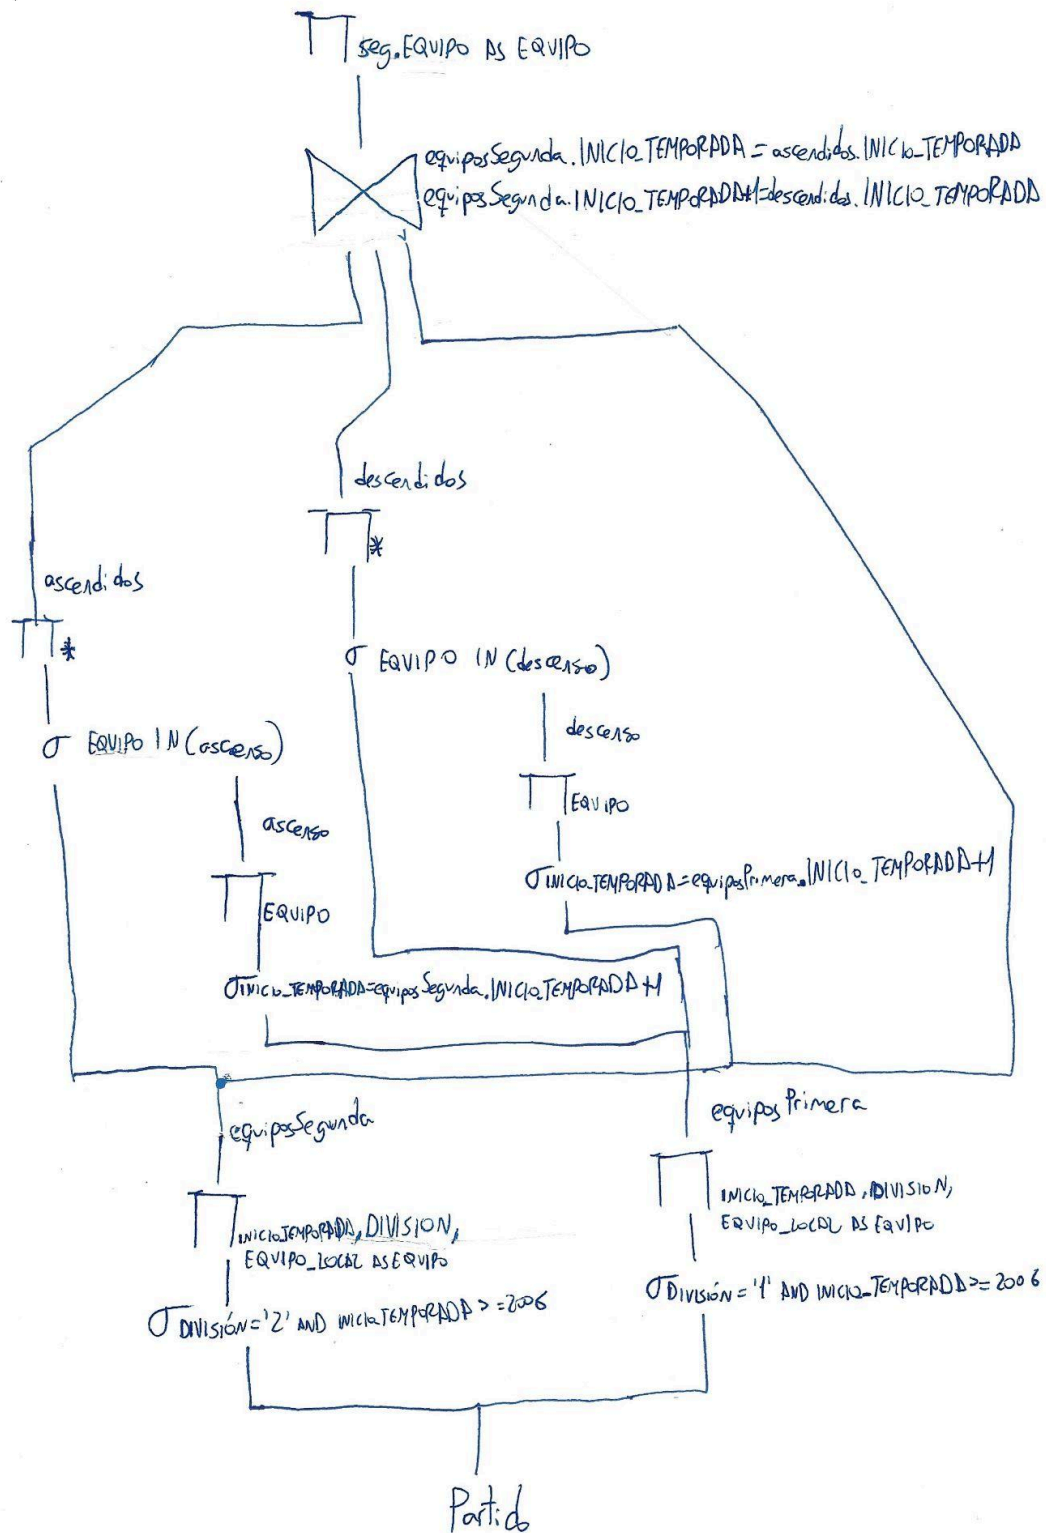 Π seg.EQUIPO AS EQUIPO
equiposSegunda.INICIO_TEMPORADA = ascendidos.INICIO_TEMPORADA
equiposSegunda.INICIO_TEMPORADA+1=descendidos.INICIO_TEMPORADA
descendidos
Π *
ascendidos
Π *
σ EQUIPO IN (descenso)
descenso
σ EQUIPO IN (ascenso)
Π EQUIPO
ascenso
σ INICIO_TEMPORADA=equiposPrimera.INICIO_TEMPORADA+1
Π EQUIPO
σ INICIO_TEMPORADA=equiposSegunda.INICIO_TEMPORADA+1
equiposPrimera
equiposSegunda
Π INICIO_TEMPORADA, DIVISION,
EQUIPO_LOCAL AS EQUIPO
Π INICIO_TEMPORADA, DIVISION,
EQUIPO_LOCAL AS EQUIPO
σ DIVISIÓN='1' AND INICIO_TEMPORADA>=2006
σ DIVISIÓN='2' AND INICIO_TEMPORADA>=2006
Partido